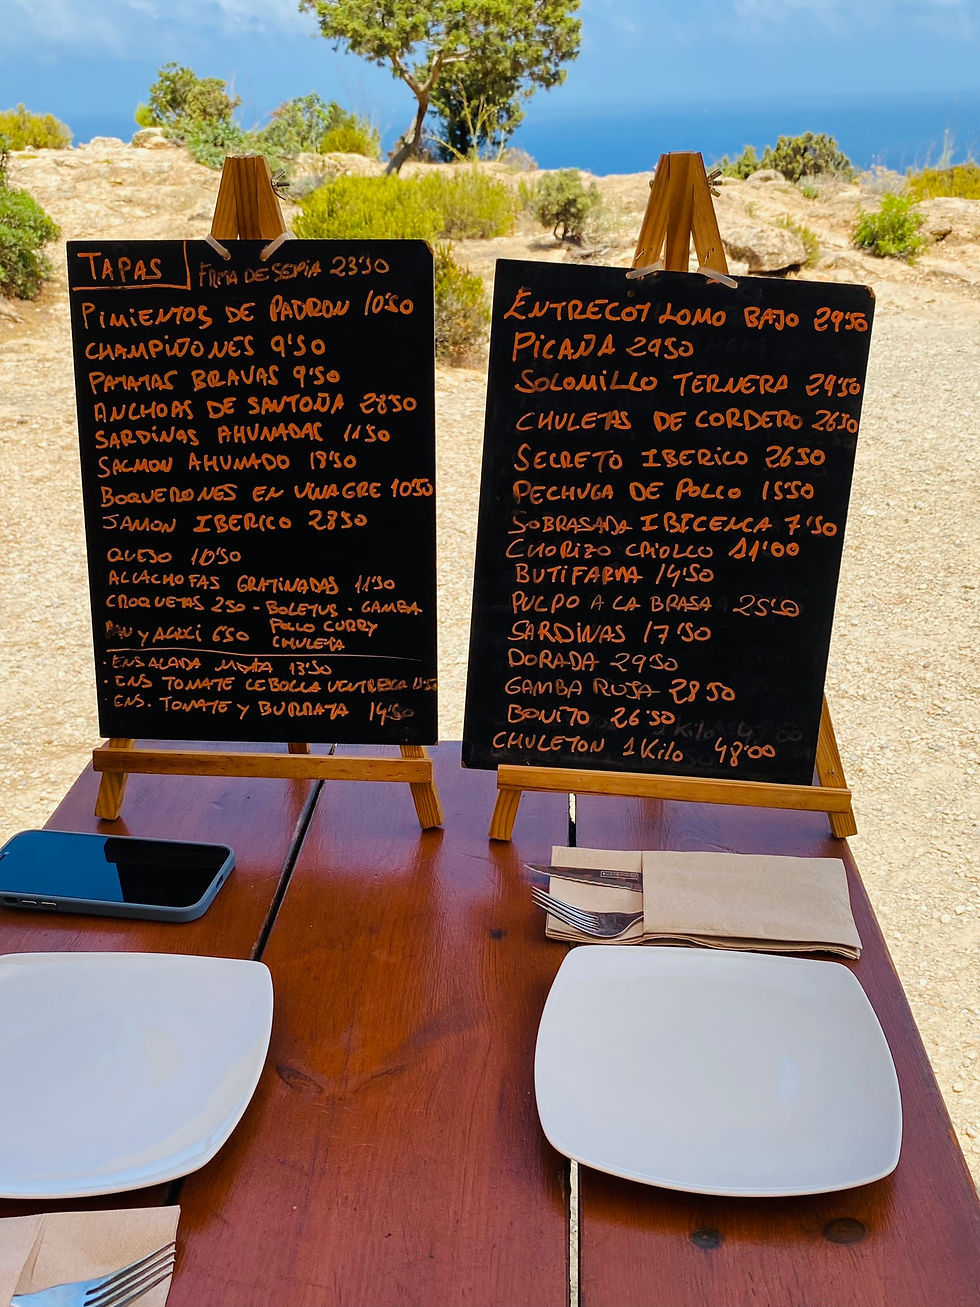 TAPAS
FRITA DE SEPIA 23'50
PIMIENTOS DE PADRON 10'50
CHAMPIÑONES 9'50
PATATAS BRAVAS 9'50
ANCHOAS DE SANTOÑA 28'50
SARDINAS AHUMADAS 11'50
SALMON AHUMADO 18'50
BOQUERONES EN VINAGRE 10'50
JAMON IBERICO 28'50
QUESO 10'50
ALCACHOFAS GRATINADAS 11'50
CROQUETAS 2'50 - BOLETUS - GAMBA
POLLO CURRY
PAN Y ALIOLI 6'50
CHULETA
· ENSALADA MIXTA 13'50
· ENS TOMATE CEBOLLA VENTRESCA
· ENS. TOMATE Y BURRATA 14'50
ENTRECOT LOMO BAJO 29'50
PICAÑA 29'50
SOLOMILLO TERNERA 29'50
CHULETAS DE CORDERO 26'50
SECRETO IBERICO 26'50
PECHUGA DE POLLO 15'50
SOBRASADA IBICENCA 7'50
CHORIZO CRIOLLO 11'00
BUTIFARRA 14'50
PULPO A LA BRASA 25'50
SARDINAS 17'50
DORADA 29'50
GAMBA ROJA 28'50
BONITO 26'50
CHULETON 1 Kilo 48'00